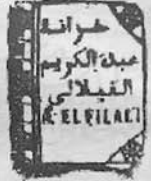 خزانة
عبد الكريم
الفيلالي
A-ELFILALI